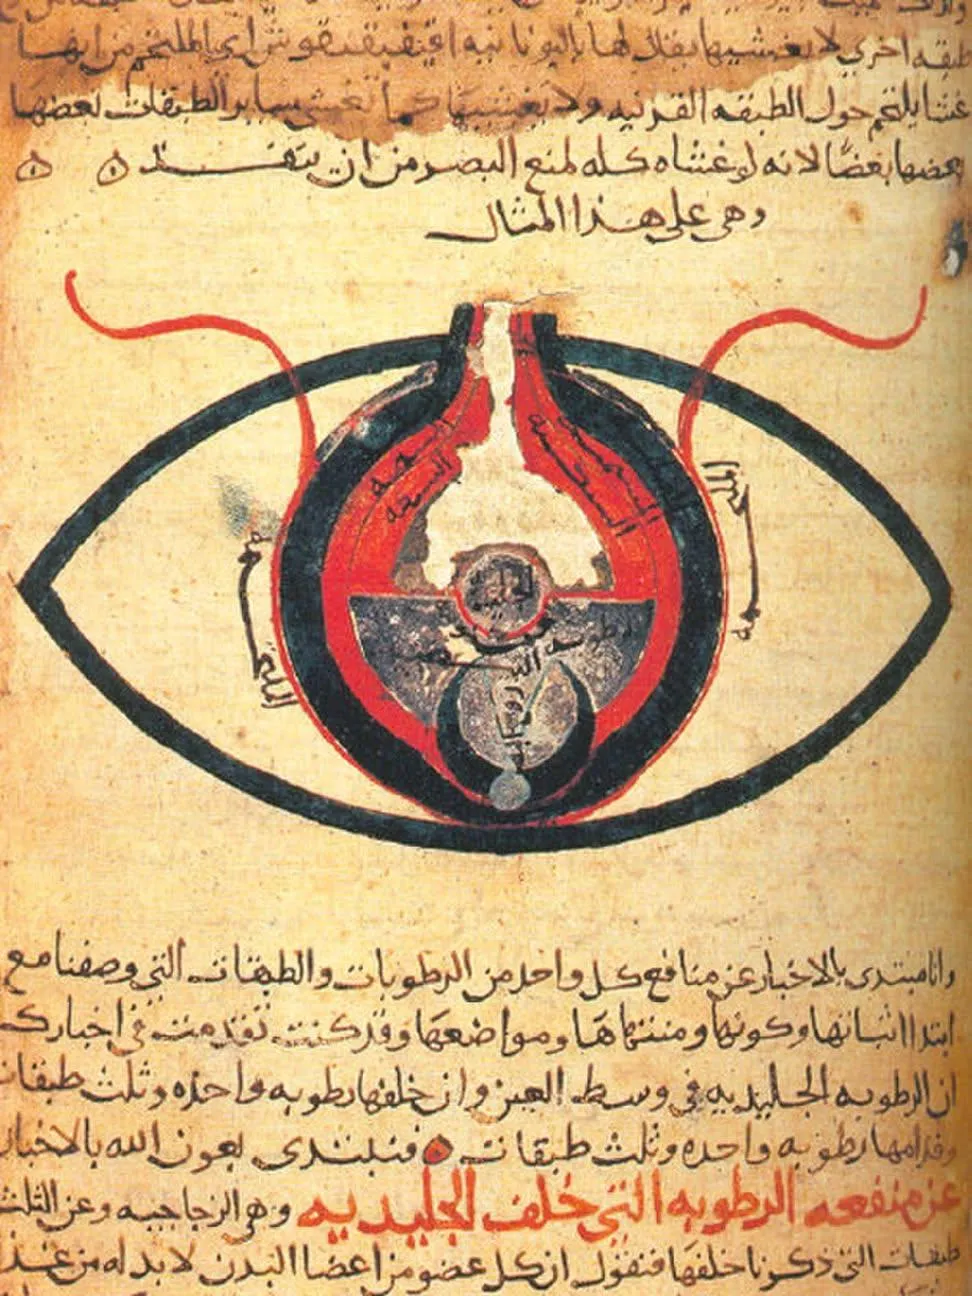 طبقه اخرى لا يغشيها يقال لها باليونانيه اي الملتحم من انها
غشا يلتحم حول الطبقه القرنيه ولا يغشيها كما تغشي ساير الطبقات بعضها
بعضها بعضا لانه لو غشاه كله لمنع البصر من ان ينفذ
وهي على هذا المثال
الملتحمه
الملتحمه
الجليديه
وانا مبتدى بالاخبار عن منافع كل واحد من الرطوبات والطبقات التي وصفنا مع
ابتدا اثباتها وكونها ومنتهاها ومواضعها وقد كنت تقدمت في اخبارك
ان الرطوبه الجليديه في وسط العين وان خلفها رطوبه واحده وثلث طبقات
وقدامها رطوبه واحده وثلث طبقات فنبتدى بعون الله بالاخبار
عن منفعه الرطوبه التي خلف الجليديه وهي الزجاجيه وعن الثلث
طبقات التي ذكرنا خلفها فنقول ان كل عضو من اعضا البدن لا بد له من غذا